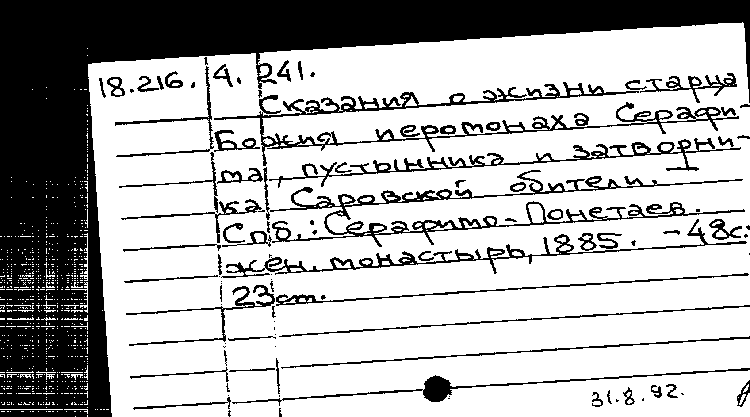 18.216. 4. 241.
Сказания о жизни старца
Божия иеромонаха Серафи-
ма, пустынника и затворни-
ка Саровской обители. –
Спб.: Серафимо-Понетаев.
жен. монастырь, 1885. – 48с.
23cm.
31.8.92.